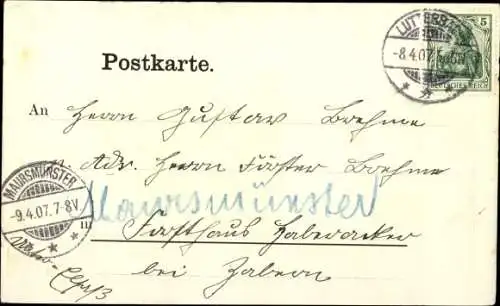 LUTTERBACH
-8.4.07.
5
DEUTSCHES REICH
Postkarte.
An Herrn Gustav Boehme
Adr. Herrn Förster Boehme
Maursmünster
MAURSMÜNSTER
-9.4.07.7-8V
in Forsthaus Haberacker
bei Zabern
Elsaß